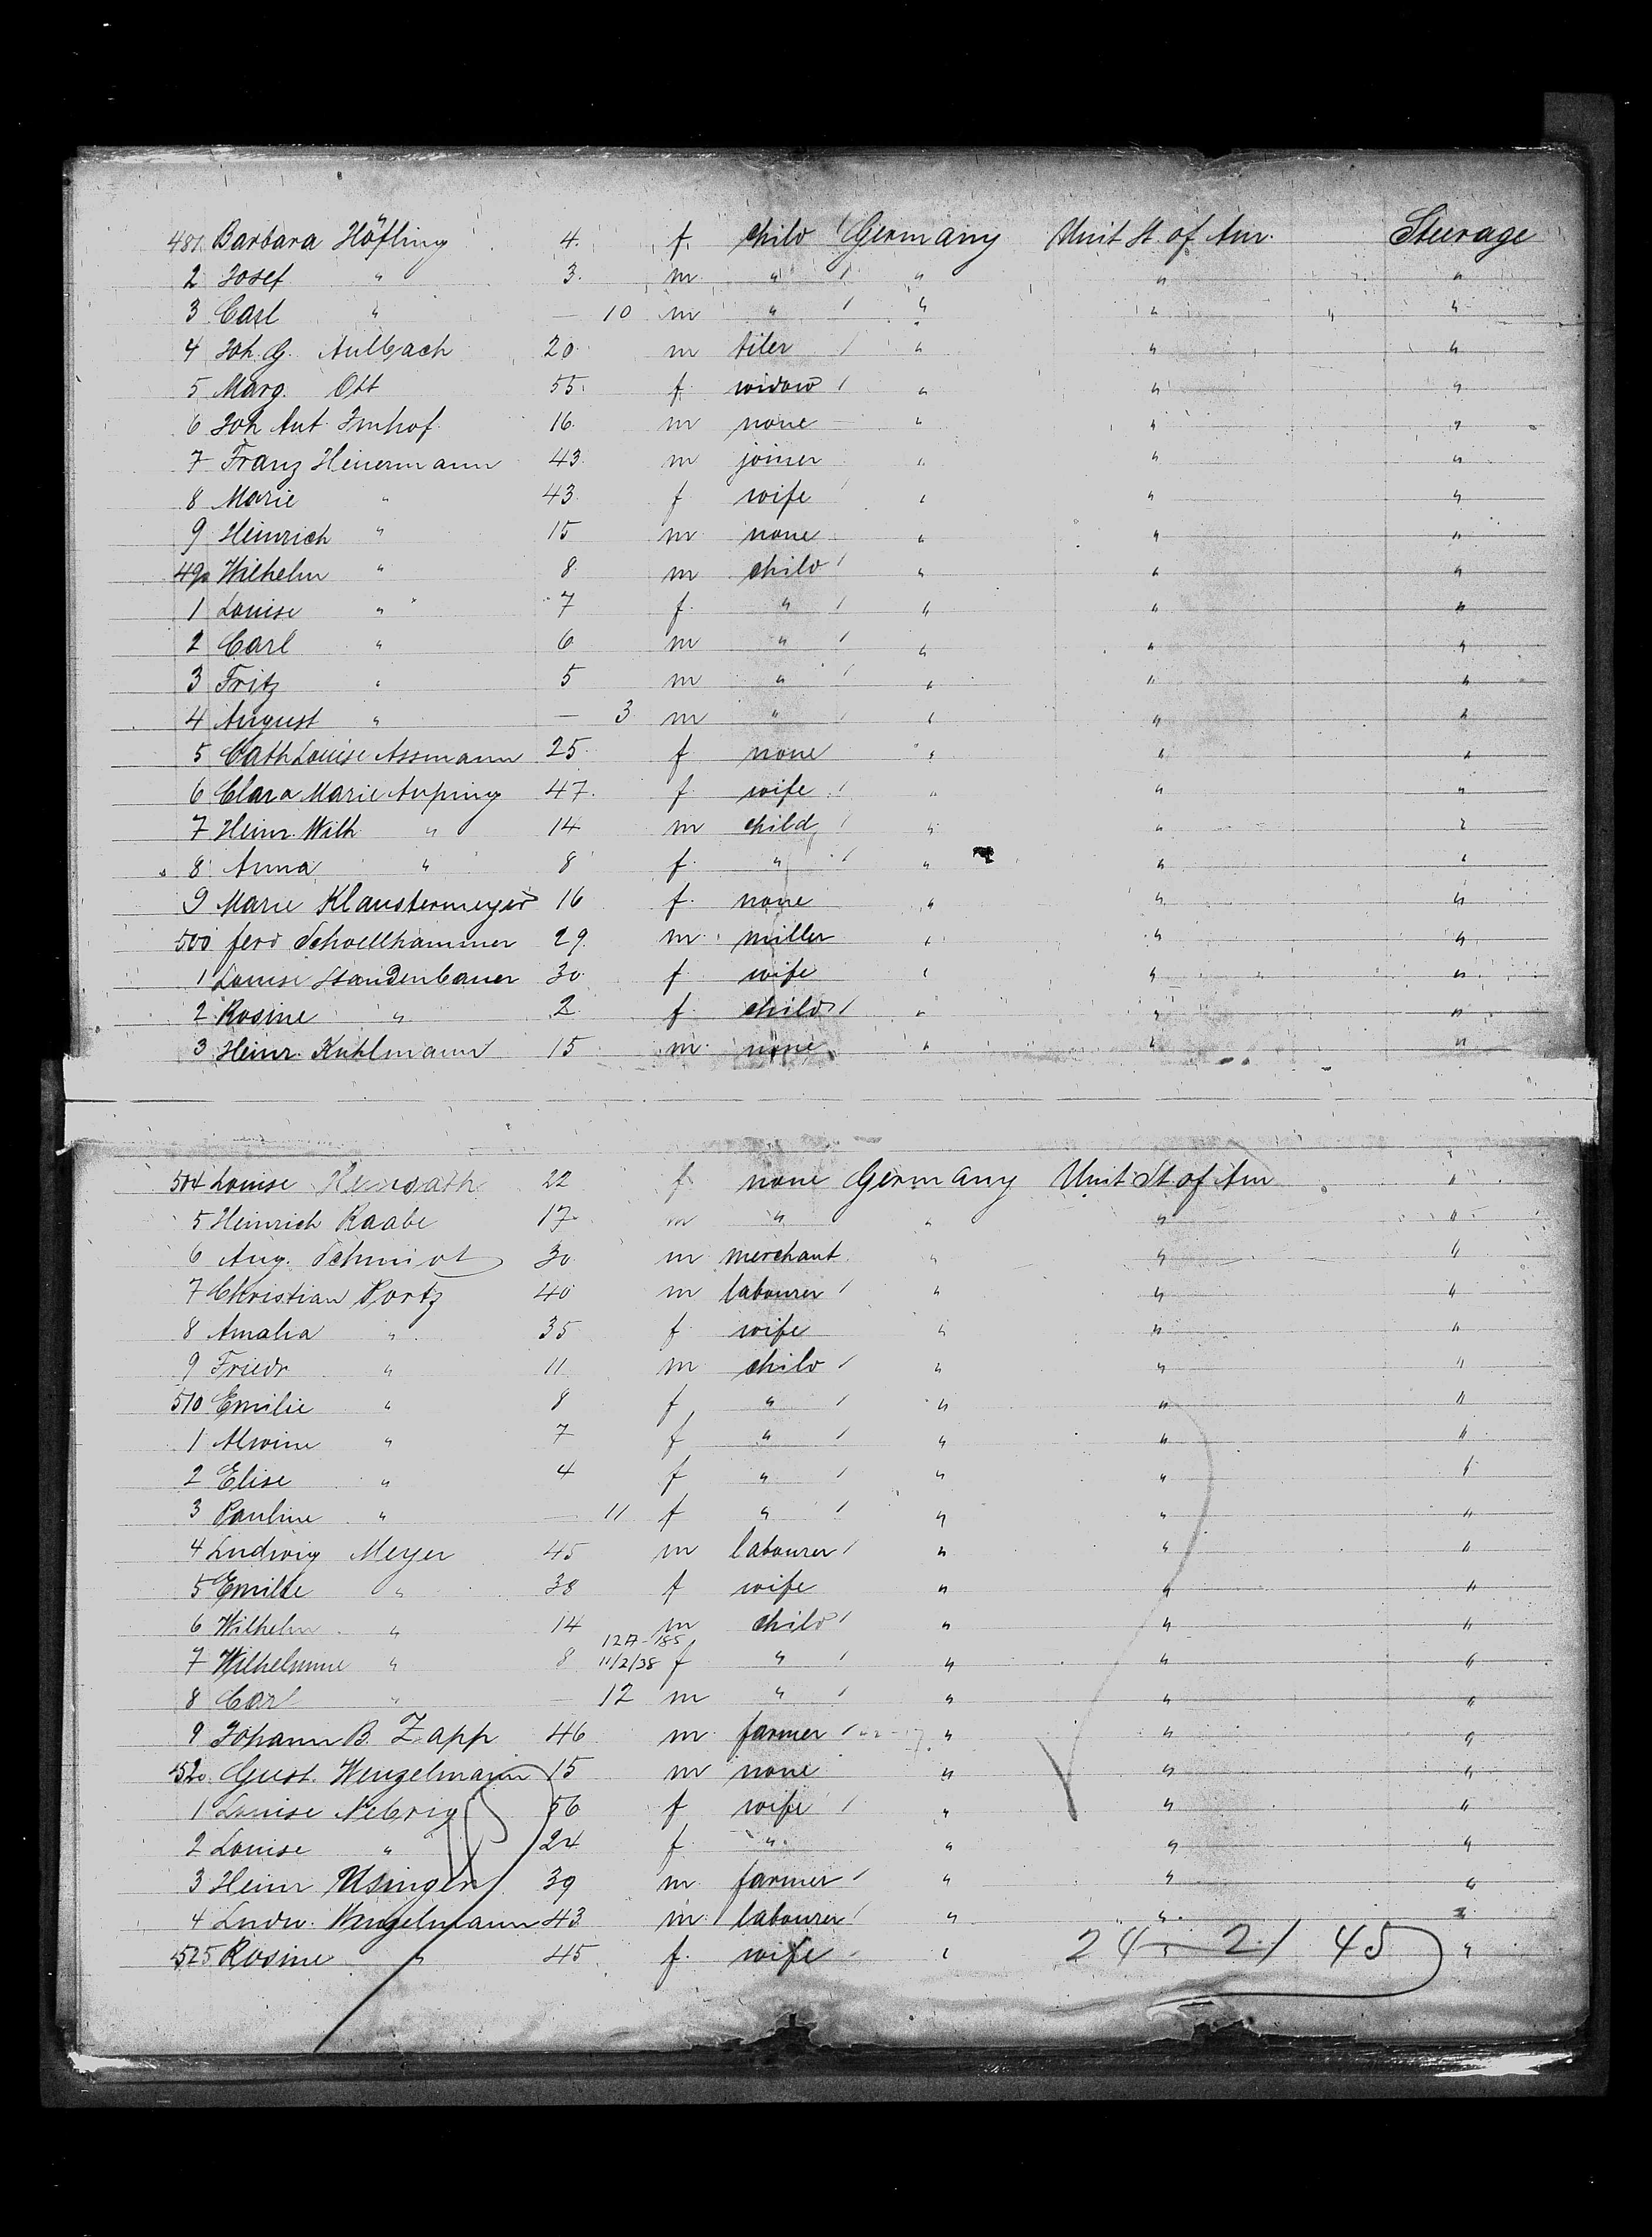 481. Barbara Höfling 4. f. child Germany Unit St. of Am. Steerage
2 Josef " 3. m " " " "
3 Carl " — 10 m " " " "
4 Joh. G. Aulbach 20 m tiler " " "
5 Marg. Ott 55. f. widow " " "
6 Joh Ant Imhof 16. m none " " "
7 Franz Heinermann 43. m joiner " " "
8 Marie " 43. f wife " " "
9 Heinrich " 15 m none " " "
490 Wilhelm " 8. m child " " "
1 Louise " 7 f. " " " "
2 Carl " 6 m " " " "
3 Fritz " 5 m " " " "
4 August " — 3 m " " " "
5 Cath Louise Assmann 25. f none " " "
6 Clara Marie Auping 47. f. wife " " "
7 Heinr. Wilh " 14 m child " " "
8 Anna " 8 f. " " " "
9 Marie Klaustermeyer 16 f. none " " "
500 ferd Schoellhammer 29. m. miller " " "
1 Louise Staudenbauer 30. f wife " " "
2 Rosine " 2. f. child " " "
3 Heinr. Kuhlmann 15 m. none " " "
504 Louise 22 f none Germany Unit St. of Am "
5 Heinrich Raabe 17. m " " " "
6 Aug. Schmidt 30 m merchant " " "
7 Christian Portz 40 m labourer " " "
8 Amalia " 35 f wife " " "
9 Friedr " 11 m child " " "
510 Emilie " 8 f " " " "
1 Alwine " 7 f " " " "
2 Elise " 4 f " " " "
3 Pauline " — 11 f " " " "
4 Ludwig Meyer 45 m labourer " " "
5 Emilie " 38 f wife " " "
6 Wilhelm " 14 m child " " "
12A-185
7 Wilhelmine " 8 11/2/38 f " " " "
8 Carl " — 12 m " " " "
9 Johann B. Zapp 46 m farmer " " "
520. Gust. Wenzelmann 15 m none " " "
1 Louise Nebrig 56 f wife " " "
2 Louise " 24 f. " " " "
3 Heinr Usinger 39 m farmer " " "
4 Ludw. Wenzelmann 43 m labourer " " "
525 Rosine " 45. f. wife " 24 - 21 45 "